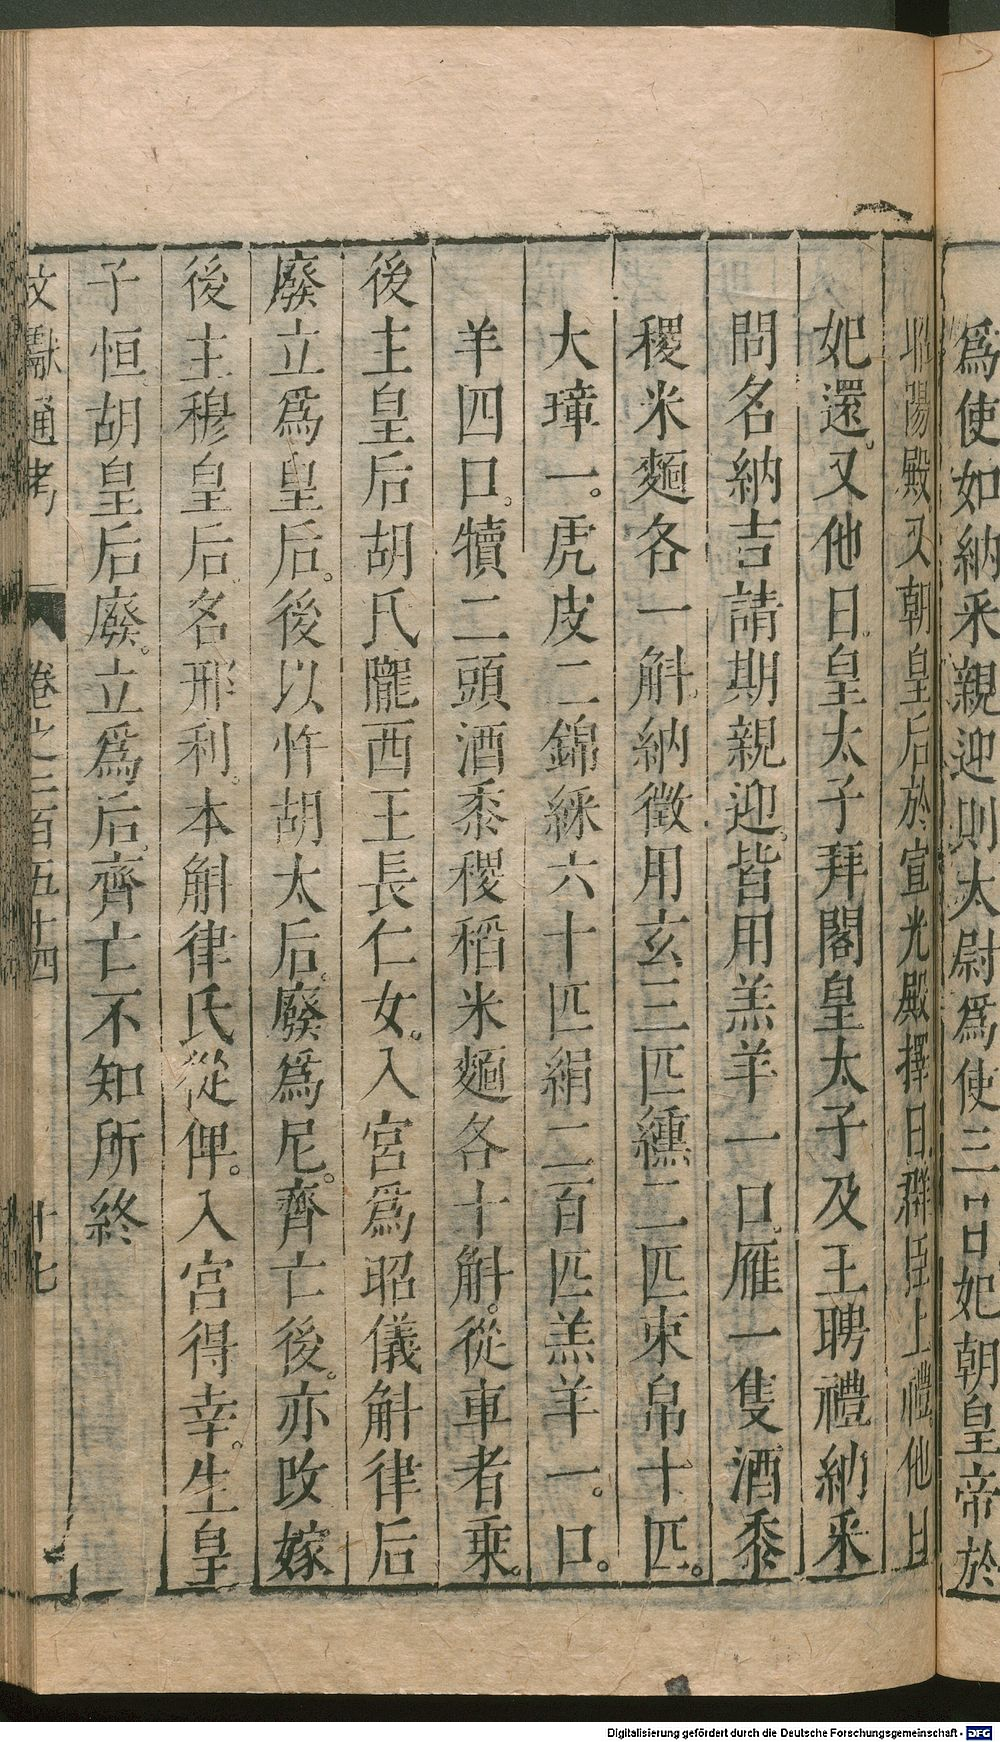 爲使如納采親迎則太尉爲使三日妃朝皇帝於
昭陽殿又朝皇后於宣光殿擇日群臣上禮他日
妃還。又他日。皇太子拜閤皇太子及王聘禮納采
問名納吉請期親迎。皆用羔羊一口。雁一隻酒黍
稷米麵各一斛。納徵用玄三匹纁二匹束帛十匹。
大璋一。虎皮二錦綵六十匹絹二百匹羔羊一。口。
羊四口。犢二頭酒黍稷稻米麵各十斛。從車者乗。
後主皇后胡氏隴西王長仁女。入宮爲昭儀斛律后
廢立爲皇后。後以忤胡太后。廢爲尼。齊亡後。亦改嫁
後主穆皇后。名邢利。本斛律氏從俾。入宮得幸。生皇
子恒。胡皇后廢。立爲后。齊亡不知所終
文獻通考 卷之二百五十四 十七
Digitalisierung gefördert durch die Deutsche Forschungsgemeinschaft - DFG